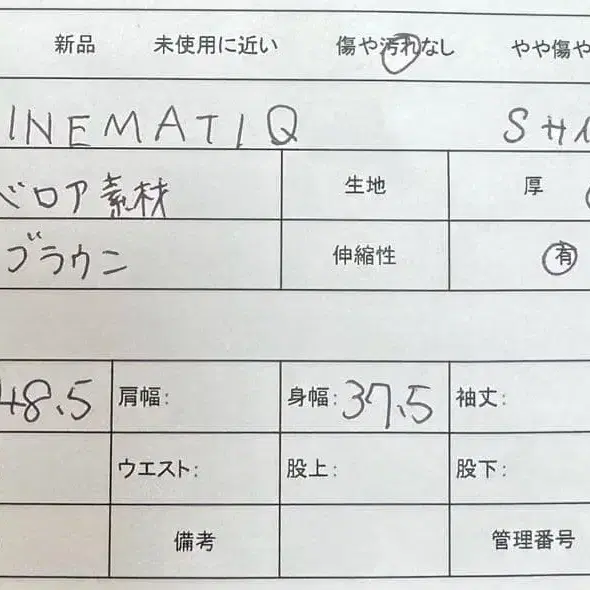 新品 未使用に近い 傷や汚れなし やや傷や
INEMATIQ SH
ベロア素材 生地 厚
ブラウン 伸縮性 有
48.5 肩幅: 身幅: 37.5 袖丈:
ウエスト: 股上: 股下:
備考 管理番号